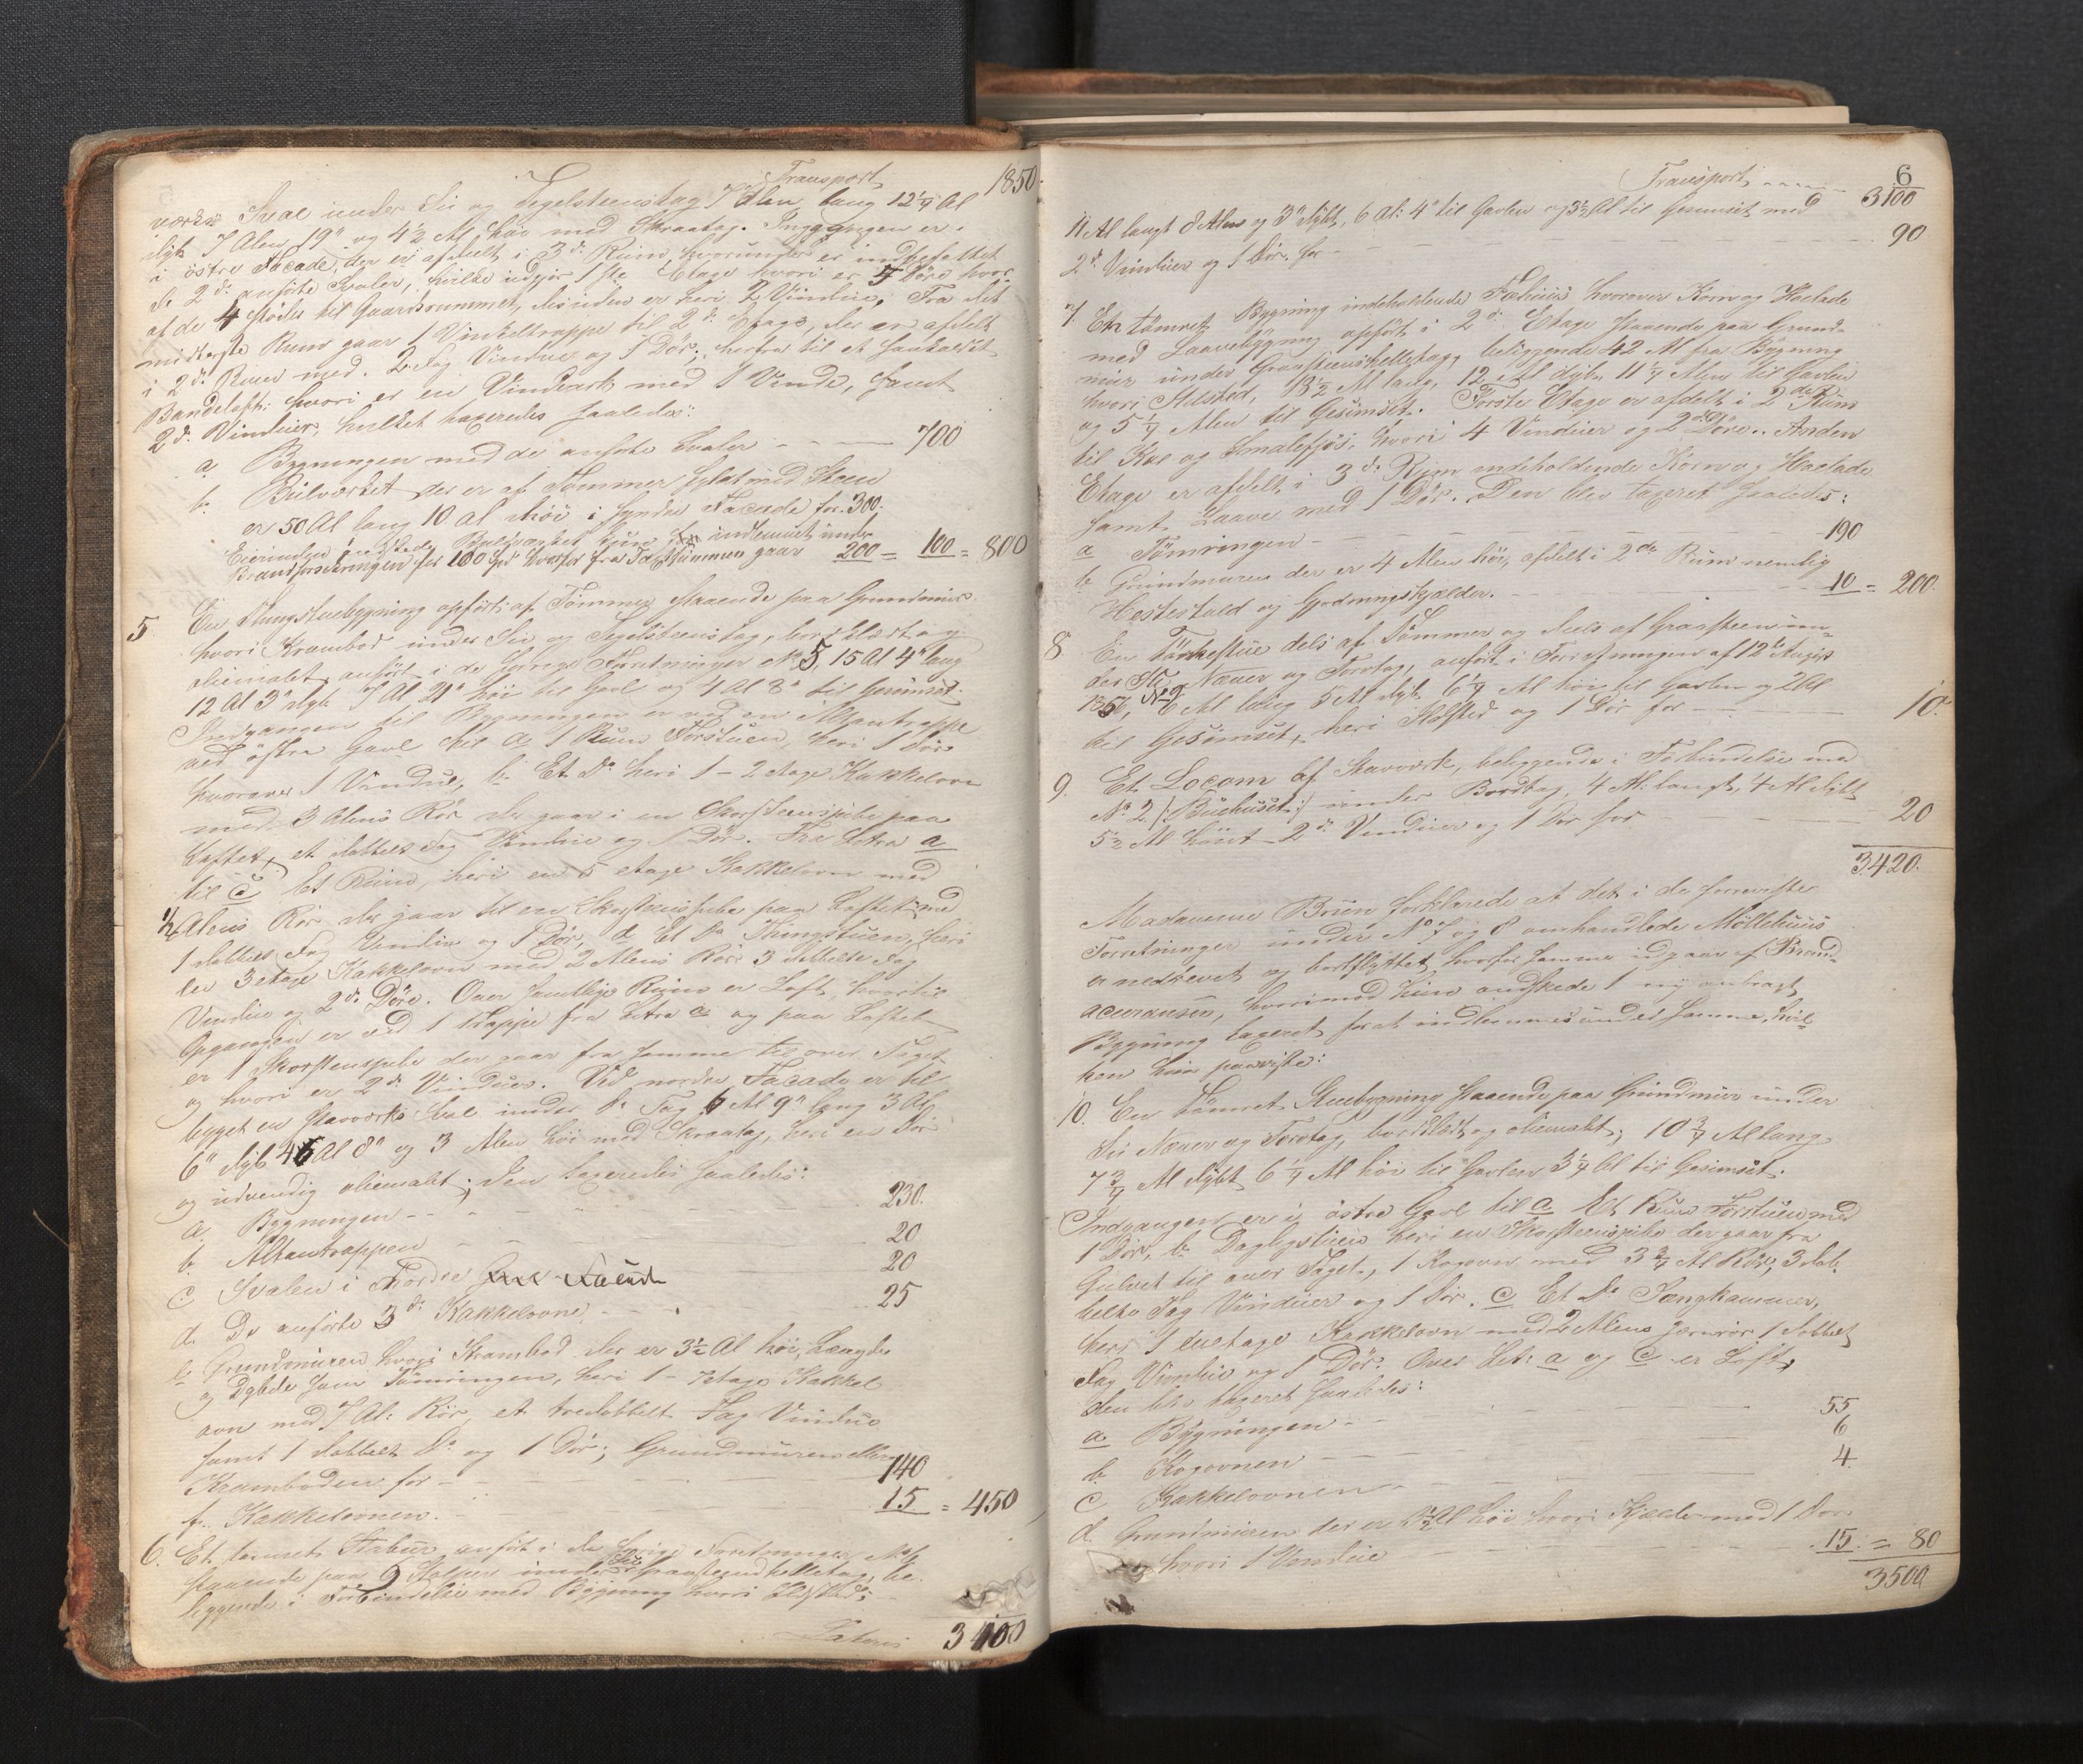 Transport 1850.
værks Sval under Su og Tegelsteenstag 7 Alen lang 12 1/4 Al
dyb 7 Alen 19" og 4 1/2 Al høi med Skraatag. Inggangen er
i östre Facade, der er afdelt i 3de Rum, hvorunder er indbefattet
de 2de anførte Svaler, hvilke udgjør 1ste Etage hvori er 7 Döre hvor-
af de 4 støder til Gaardsrummet, desuden er heri 2 Vinduer, Fra det
midterste Rum gaar 1 Vinkeltrappe til 2den Etage, der er afdelt
i 2de Rum med 2 Fag Vinduer og 1 Dör, herfra til et saakaldet
Bandeloft hvori er en Vindeark med 1 Vinde, samt
2de Vinduer, hvilket taxeredes saaledes:
a Bygningen med de anførte Svaler 700
b. Bulværket der er af Tømmer fyldt med Steen
er 50 Al lang 10 Al høi i søndre Facade for 300.
Eierinden Bulværket indlemmet under
Brandforsikringen for 100 Spd hvorfor fra Taxtsummen gaar 200 = 100 = 800
5 En Thingstuebygning opført af Tømmer staaende paa Grundmuur
hvori Krambod under Su og Tegelsteenstag, bordklædt og
oliemalet, anført i de forrige Forretninger No 5, 15 Al 4" lang
12 Al 3" dyb 7 Al 21" høi til Gavl og 4 Al 8" til Gesimset.
Indgangen til Bygningen er ved en Altantrappe
ved östre Gavl til a 1 Rum Forstuen, heri 1 Dör
hvorover 1 Vindue, b. Et Do heri 1 - 2 etage Kakkelovn
med 3 Alens Rör der gaar i en Skorsteenspibe paa
Loftet, et dobbelt Fag Vindue og 1 Dör. Fra Litra a
til c Et Rum, heri en 5 etage Kakkelovn med
1/2 Alens Rör der gaar til en Skorsteenspibe paa Loftet med
1 dobbelt Fag Vindue og 1 Dör, d Et Do Thingstuen, heri
en 3 etage Kakkelovn med 2 Alens Rör 3 dobbelte Fag
Vindue og 2de Döre. Over samtlige Rum er Loft, hvortil
Opgangen er ved 1 Trappe fra Litra a og paa Loftet
er 1 Skorsteenspibe der gaar fra samme til over Taget
og hvori er 2de Vinduer. Ved nordre Facade er til-
bygget en Stavværks Sval under Do Tag 6 Al 9" lang 3 Al
6" dyb 4 Al 8" og 3 Alen høi med Skraatag, heri en Dör
og udvendig oliemalet; den taxeredes saaledes:
a. Bygningen 230.
b. Altantrappen 20
c Svalen i Nordre Facade 20
d. De anførte 3de Kakkelovne 25
e. Grundmuren hvori Krambod der er 3 1/2 Al høi, Længde
og Dybde som Tømringen, heri 1 - etage Kakkel
ovn med 7 Al: Rör, et tredobbelt Fag Vindue
samt 1 dobbelt Do og 1 Dör; Grundmuren eller
Kramboden for 140
f. Kakkelovnen 15 = 450
6. Et tømret Stabur anført i de forrige Forretninger No 6
staaende paa 9 Stolper under Su Graasteenshelletag, be-
liggende i Forbindelse med Bygning hvori Ildsted:
Lateris 3100
6
Transport 3100
11 Al langt 8 Alen og 3" dybt, 6 Al: 4" til Gavlen og 3 1/2 Al til Gesimset med
2de Vinduer og 1 Dör for 90
7. En tømret Bygning indeholdende Fæhuus hvorover Korn og Høelade
med Laavebygning opført i 2de Etage staaende paa Grund-
muur under Graasteenshelletag, beliggende 42 Al fra Bygning
hvori Ildsted, 13 1/2 Al lang, 12 Al dyb, 11 1/4 Alen til Gavlen
og 5 1/4 Alen til Gesimset. Første Etage er afdelt i 2de Rum
til Koe og Smalefjøs, hvori 4 Vinduer og 2de Döre. Anden
Etage er afdelt i 3de Rum indeholdende Korn og Høelade
samt Laave med 1 Dör. Den blev taxeret saaledes:
a Tømringen 190
b Grundmuren der er 4 Alen høi, afdelt i 2de Rum nemlig
Hestestald og Gjødningskjælder. 10 = 200.
8. En Tørkestue dels af Tømmer og dels af Graasteen un-
der Su Næver og Torvtag, anført i Forretningen af 12te August
1856, No 9, 6 Al lang 5 Al dyb 6 1/4 Al høi til Gavlen og 2 Al
til Gesimset, heri Ildsted og 1 Dör for 10.
9. Et Locom af Stavværk, beliggende i Forbindelse med
No 2 (: Buehuset :) under Bordtag, 4 Al: langt, 4 Al dybt
5 1/2 Al høit 2de Vinduer og 1 Dör for 20
3420.
Madamme Bruun forklarede at det i de forrevrste
Forretninger under No 7 og 8 omhandlede Møllehuus
er nedrevet og bortflyttet, hvorfor samme udgaar af Brand-
accurancen, hvorimod hun ønskede 1 ny anbragt
Bygning taxeret for at indlemmes under samme, hvil-
ken hun paaviste:
10. En tømret Stuebygning staaende paa Grundmuur under
Su Næver og Torvtag, bordklædt og oliemalt, 10 3/4 Al lang
7 3/4 Al dybt 6 1/4 Al høi til Gavlen 3 1/4 Al til Gesimset.
Indgangen er i östre Gavl til a Et Rum Forstuen med
1 Dör, b. Dagligstuen heri en Skorsteenspibe der gaar fra
Gulvet til over Taget, 1 Kogovn med 3 3/4 Al Rör, 3 dob-
belte Fag Vinduer og 1 Dör. c Et Do Sengkammer,
heri 1 en etage Kakkelovn med 2 Alens Jernrör 1 dobbelt
Fag Vindue og 1 Dör. Over Litr: a og c er Loft,
den blev taxeret saaledes:
a Bygningen 55
b. Kogovnen 6
c Kakkelovnen 4.
d. Grundmuren der er Al høi hvori Kjælder med 1 Dör
og hvori 1 Vindue 15 = 80
3500